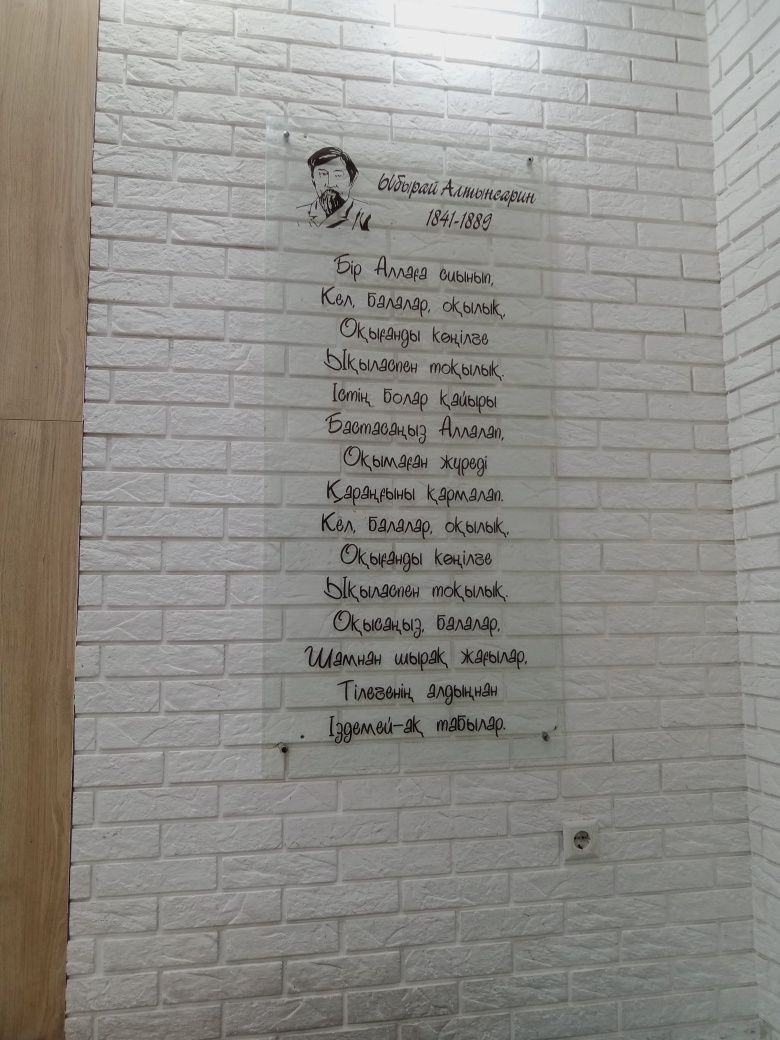 Ыбырай Алтынсарин
1841-1889
Бір Аллаға сиынып,
Кел, балалар, оқылық,
Оқығанды көңілге
Ықыласпен тоқылық.
Істің болар қайыры
Бастасаңыз Аллалап,
Оқымаған жүреді
Қараңғыны қармалап.
Кел, балалар, оқылық,
Оқығанды көңілге
Ықыласпен тоқылық.
Оқысаңыз, балалар,
Шамнан шырақ жағылар,
Тілегенің алдыңнан
Іздемей-ақ табылар.